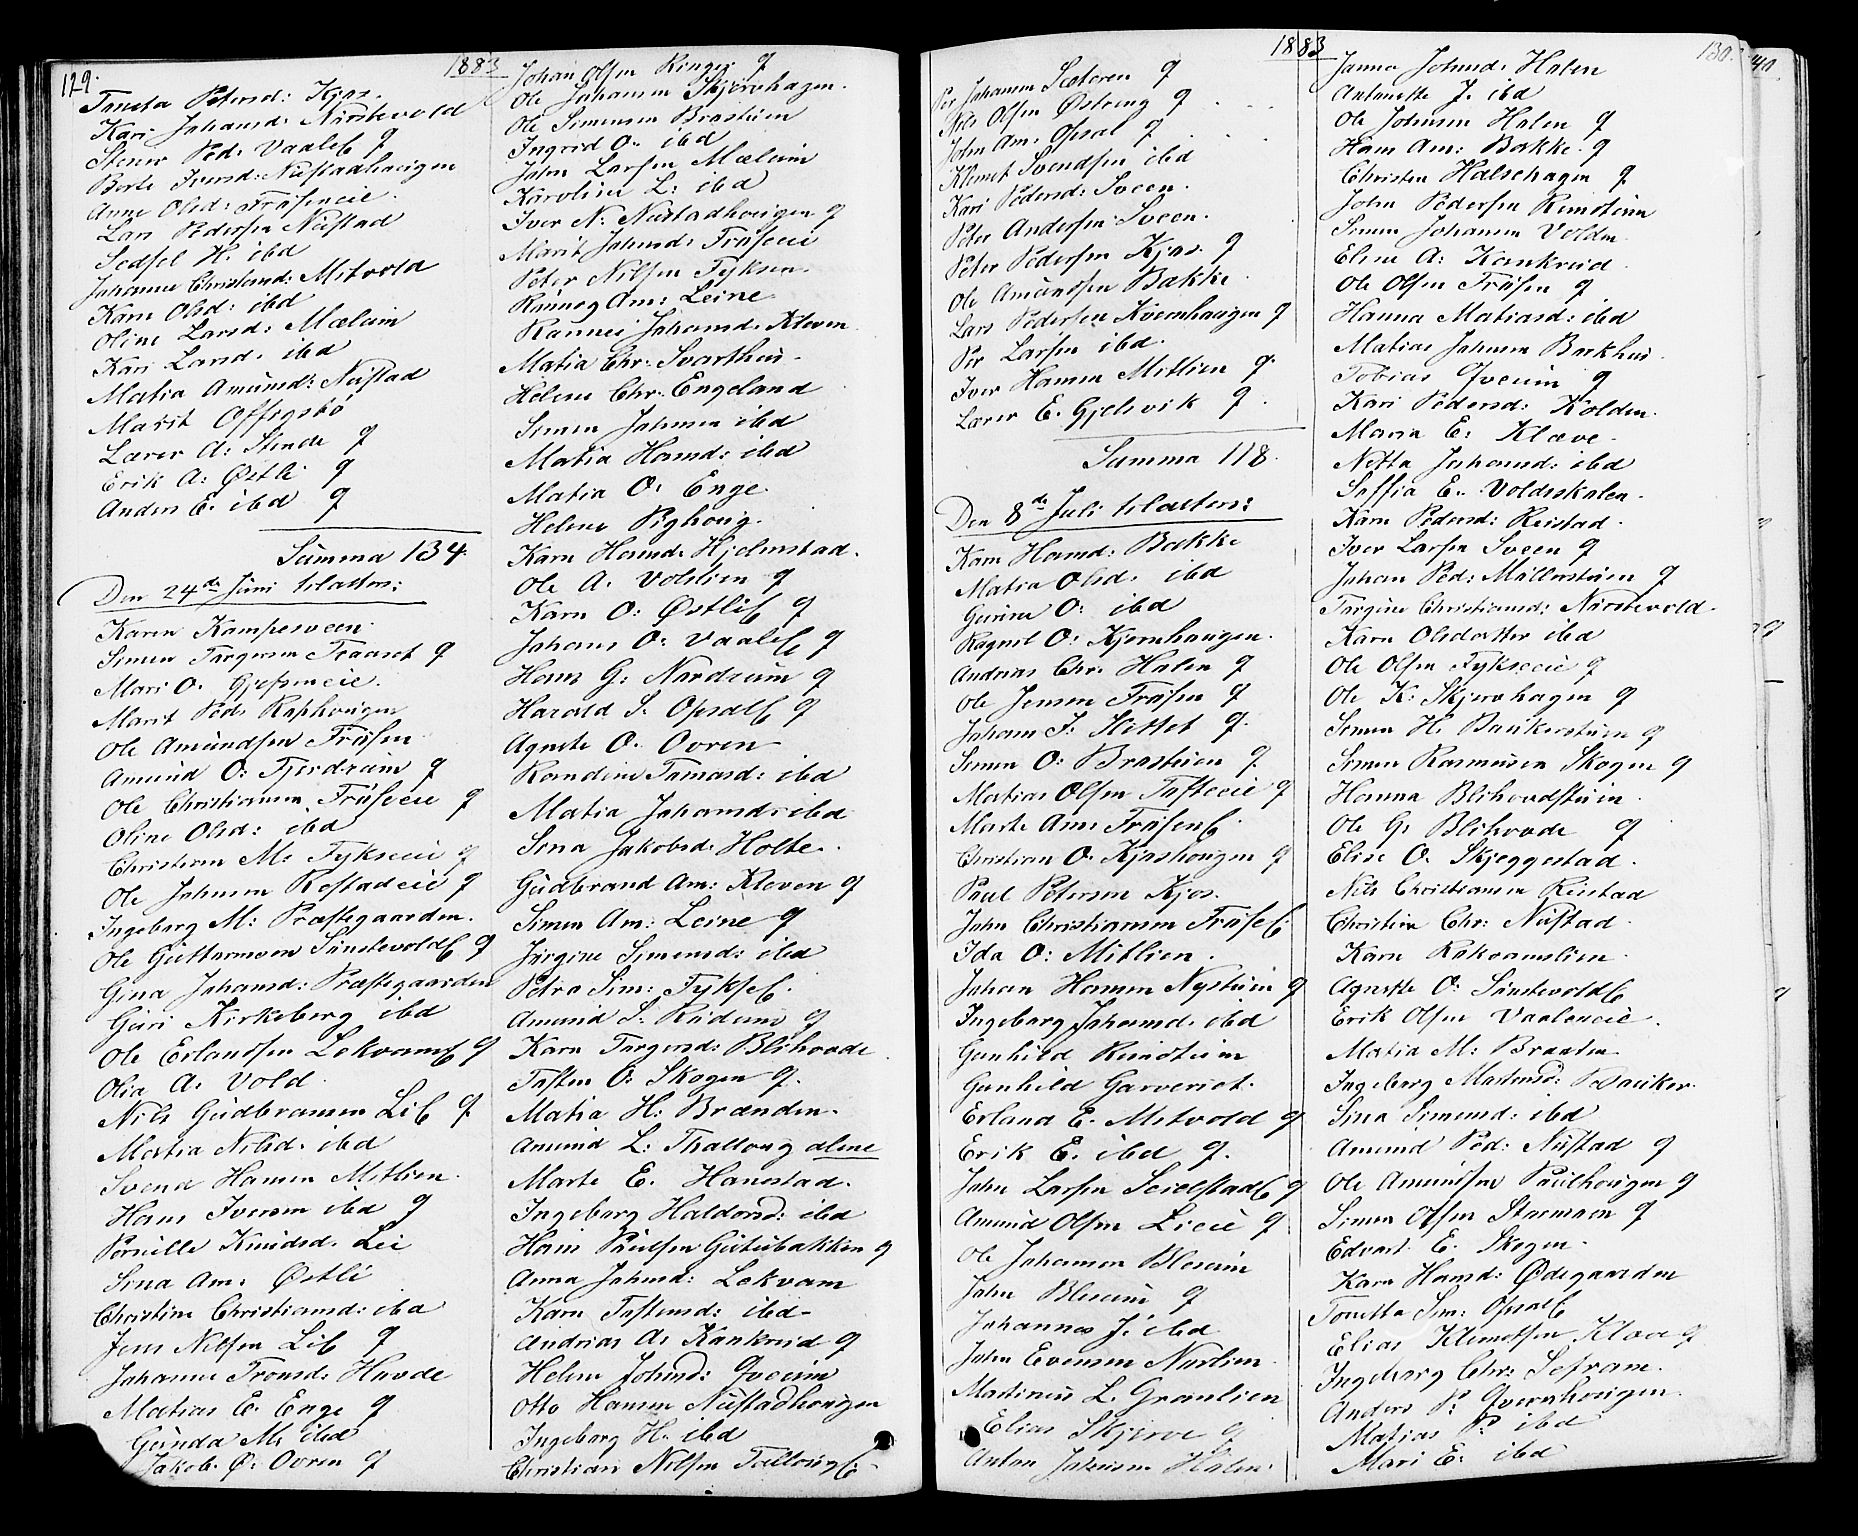 129.
1883
Kari Johansd: Nörstevold
Stener Ped: Vaale q
Berte Iversd: Nustadhougen
Anne Olsd: Fröiseneie
Lars Pedersen Nustad
Sedsel H. ibd
Johanne Christiansd: Mitvold
Karn Olsd: ibd
Oline Larsd: Mælum
Kari Larsd. ibd
Matia Amunsd: Nustad
Marit
Lærer A: Stende q
Erik A: Østli q
Anders E. ibd q
Summa 134.
Den 24de Juni tolatters:
Karen Kampesveen
Simen Torgersen q
Mari O.
Marit Ped: Raphougen
Ole Amundsen Fröisen
Amund O: Fjerdrum q
Ole Christiansen Fröiseeie q
Oline Olsd: ibd
Christian M: Fykseeie q
Ole Johnsen q
Ingeborg M: Præstegaarden.
Ole Guttormsen q
Gina Johansd: Præstegaarden
Guri Kirkeberg ibd
Ole Erlandsen Lekvam q
Olia A. Vold.
Nils Gudbransen Li q
Matia Nilsd. ibd
Svend Hansen Mitlien.
Hans Iversen ibd q
Pernille Knudsd. Lei
Sina Am: Østli
Christine Christiansd: ibd
Jens Nilsen Li q
Johanne Tronsd: Hovde
Matias E. Enge q
Gunda M: ibd
Jakob Ø: Ovren q
Johan Olsen Ringer q
Ole Johansen Skjervhagen.
Ole Simensen Brastuen
Ingrid O. ibd
John Larsen Mælum
Karoline L: ibd
Iver N: Nustadhougen q
Marit Johnsd: Fröiseeie
Peter Nilsen Fyksen.
Rönneg Am: Leine
Rannei Johansd. Kloven
Matia Chr. Svarthus.
Helene Chr. Engeland
Simen Johnsen ibd
Matia Hansd: ibd
Matia O: Enge.
Helene Pighoug.
Karn Hansd: Hjelmstad.
Ole A. Vollien q
Karn O: Østli q
Johans O: Vaale q
Hans G: Nordrum q
Harald S. Opsal q
Agnete O. Ovren
Randine Tomasd: ibd
Matia Johansd: ibd
Sina Jakobsd. Holte.
Gudbrand Am: Kloven q
Simen Am: Leine q
Jörgine Simensd: ibd
Petra Sim: Fykse
Amund S. Rudum q
Karn Torgersd: Blihovde
Tosten O: Skogen q.
Matia H: Brænden.
Amund L: Thallong alene
Marte E. Hanestad.
Ingeborg Haldorsd: ibd
Hans Paulsen Gutubakken q
Anna Johnsd: Lekvam
Karn Tostensd: ibd
Andrias A: Kankrud q
Helene Johnsd: Qveum
Otto Hansen Nustadhougen
Ingeborg H. ibd
Christian Nilsen Tallong
1883
130.
Per Johansen Sæteren q
Nils Olsen Østeng q
John Am: Opsal q
Klemet Svendsen ibd
Kari Pedersd: Sveen.
Peter Andersen Sveen.
Peter Pedersen Kjos. q
Ole Amundsen Bakke
Lars Pedersen Kvernhaugen q
Per Larsen ibd.
Iver Hansen Mitlien q
Lærer E. Gjelsvik q.
Summa 118.
Den 8de Juli tolatters:
Karn Hansd: Bakke
Matia Olsd. ibd
Gurine O: ibd
Ragnil O: Kjernhaugen.
Andrias Chr. Halen q
Ole Jensen Fröisen q
Johans J. q.
Simen O: Brastuen q
Matias Olsen Tofteeie q
Marte Am: Fröisen
Christian O. Kjoshougen q
Paul Petersen Kjos.
John Christiansen Fröise
Ida O: Mitlien.
Johan Hansen Nystuen q
Ingeborg Johansd. ibd
Gunhild Rundtuen
Gunhild Garveriet.
Erland E. Mitvold q
Erik E. ibd q.
John Larsen Seielstad q
Amund Olsen Lieie q
Ole Johansen Blesum
John Blesum q
Johannes J. ibd
John Evensen Nörlien
Martinus L. Gronlien
Elias Skjerve q
Anton Johnsen Halen.
Janna Johnsd. Halen
Antonette J. ibd
Ole Johnsen Halen q
Hans Am: Bakke. q
Christen Halsehagen q.
John Pedersen Rundtuen
Simen Johansen Volden.
Eline A: Kankrud.
Ole Olsen Fröisen q
Hanna Matiasd: ibd
Matias Johnsen Barkhus.
Tobias Qveum q
Kari Pedersd: Kolden.
Maria E: Klæve.
Netta Johansd: ibd
Soffia E. Voldeskalen.
Karn Pedersd: Reistad.
Iver Larsen Sveen q
Johan Ped: Möllerstuen q
Torgine Christiansd: Nörstevold.
Karn Olsdatter ibd
Ole Olsen Fykseeie q
Ole K. Skjervhagen q
Simen H. Baukerstuen q
Simen Rasmusen Skogen q
Hanna Blihovdstuen.
Ole G: Blihovde q
Elise O. Skjeggestad.
Nils Christiansen Reistad
Christine Chr: Nustad.
Karn Rokvamslien.
Agnette O: Sönstevold
Erik Olsen Vaaleneie.
Matia M: Braaten
Ingeborg Martinsd: Bauker.
Sina Simensd: ibd
Amund Ped: Nustad q
Ole Amundsen Paulhougen q
Simen Olsen Starmoen q
Edvart E. Skogen.
Karn Hansd: Ødegaarden
Tonetta Sm: Opsal
Elias Klemetsen Klove q
Ingeborg Chr: Sefrane.
Anders P: Qvernhougen.
Matias P. ibd
Mari E: ibd